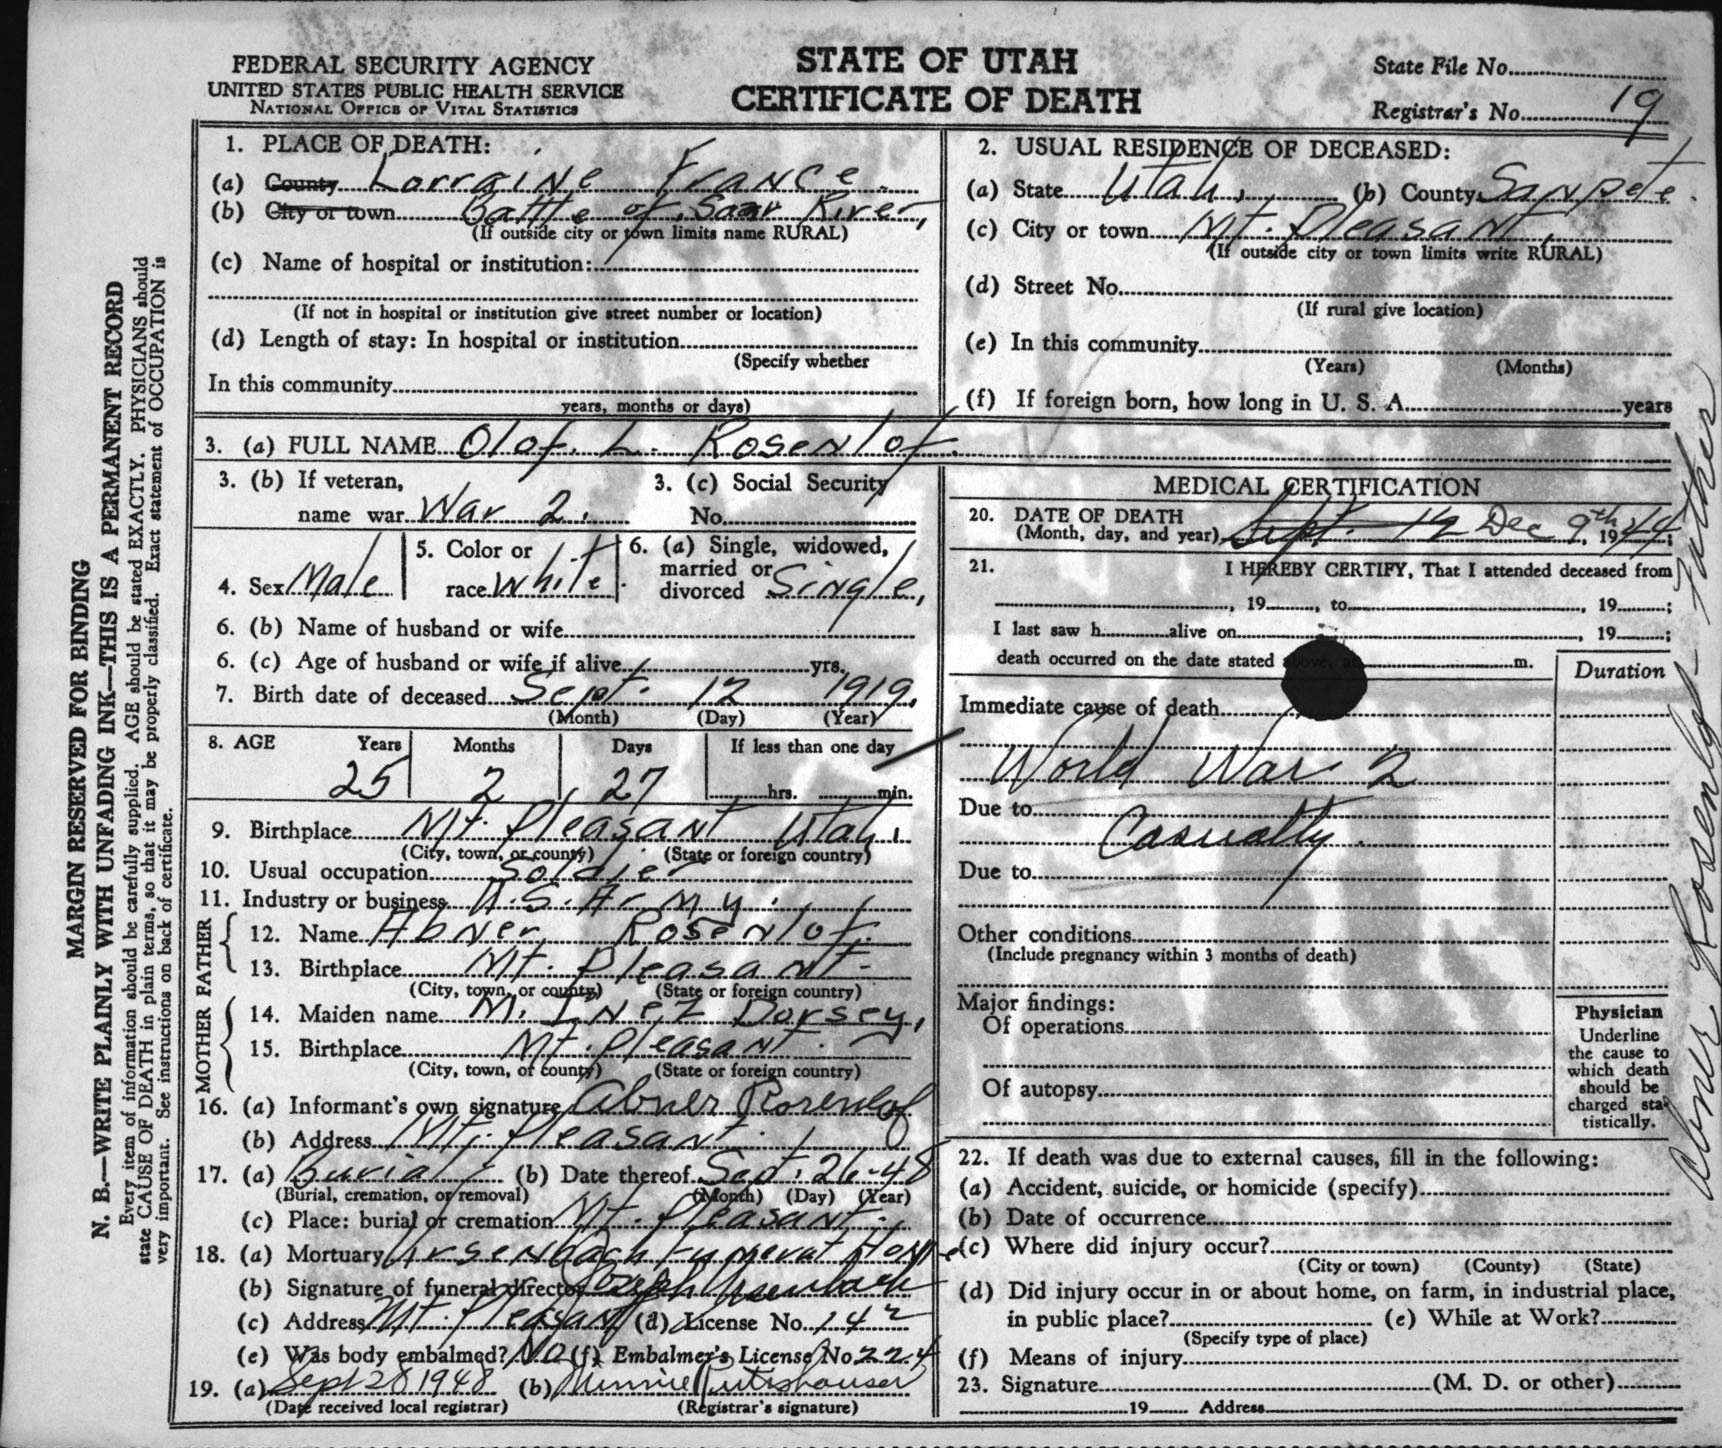 FEDERAL SECURITY AGENCY
UNITED STATES PUBLIC HEALTH SERVICE
NATIONAL OFFICE OF VITAL STATISTICS
STATE OF UTAH
CERTIFICATE OF DEATH
State File No.
Registrar's No. 19
1. PLACE OF DEATH:
(a) County Lorraine France.
(b) City or town Battle of Saar River,
(If outside city or town limits name RURAL)
(c) Name of hospital or institution:
(If not in hospital or institution give street number or location)
(d) Length of stay: In hospital or institution
(Specify whether
In this community
years, months or days)
2. USUAL RESIDENCE OF DECEASED:
(a) State Utah, (b) County Sanpete
(c) City or town Mt. Pleasant,
(If outside city or town limits write RURAL)
(d) Street No.
(If rural give location)
(e) In this community
(Years) (Months)
(f) If foreign born, how long in U. S. A. years
3. (a) FULL NAME Olof. L. Rosenlof.
3. (b) If veteran,
name war War 2.
3. (c) Social Security
No.
4. Sex Male
5. Color or
race White.
6. (a) Single, widowed,
married or
divorced Single,
6. (b) Name of husband or wife
6. (c) Age of husband or wife if alive yrs.
7. Birth date of deceased Sept. 12 1919,
(Month) (Day) (Year)
8. AGE Years Months Days If less than one day
25 2 27 hrs. min.
9. Birthplace Mt. Pleasant Utah,
(City, town, or county) (State or foreign country)
10. Usual occupation Soldier
11. Industry or business U.S. Army.
FATHER
12. Name Abner Rosenlof.
13. Birthplace Mt. Pleasant
(City, town, or county) (State or foreign country)
MOTHER
14. Maiden name M. Inez Dorsey,
15. Birthplace Mt. Pleasant.
(City, town, or county) (State or foreign country)
16. (a) Informant's own signature Abner Rosenlof
(b) Address Mt. Pleasant.
17. (a) Burial (b) Date thereof Sept. 26-48
(Burial, cremation, or removal) (Month) (Day) (Year)
(c) Place: burial or cremation Mt. Pleasant.
18. (a) Mortuary Ursenbach Funeral Home
(b) Signature of funeral director Joseph Ursenbach
(c) Address Mt. Pleasant (d) License No. 142
(e) Was body embalmed? No (f) Embalmer's License No 224
19. (a) Sept 28 1948 (b) Minnie Rutishauser
(Date received local registrar) (Registrar's signature)
MEDICAL CERTIFICATION
20. DATE OF DEATH
(Month, day, and year) Sept. 12 Dec 9th, 1944;
21. I HEREBY CERTIFY, That I attended deceased from
, 19 , to , 19 ;
I last saw h alive on , 19 ;
death occurred on the date stated above, at m.
Duration
Immediate cause of death
World War 2
Due to
Casualty.
Due to
Other conditions
(Include pregnancy within 3 months of death)
Major findings:
Of operations
Of autopsy
Physician
Underline
the cause to
which death
should be
charged sta-
tistically.
22. If death was due to external causes, fill in the following:
(a) Accident, suicide, or homicide (specify)
(b) Date of occurrence
(c) Where did injury occur?
(City or town) (County) (State)
(d) Did injury occur in or about home, on farm, in industrial place,
in public place? (e) While at Work?
(Specify type of place)
(f) Means of injury
23. Signature (M. D. or other)
19 Address
MARGIN RESERVED FOR BINDING
N. B.—WRITE PLAINLY WITH UNFADING INK—THIS IS A PERMANENT RECORD
Every item of information should be carefully supplied. AGE should be stated EXACTLY. PHYSICIANS should
state CAUSE OF DEATH in plain terms, so that it may be properly classified. Exact statement of OCCUPATION is
very important. See instructions on back of certificate.
Abner Rosenlof - Father